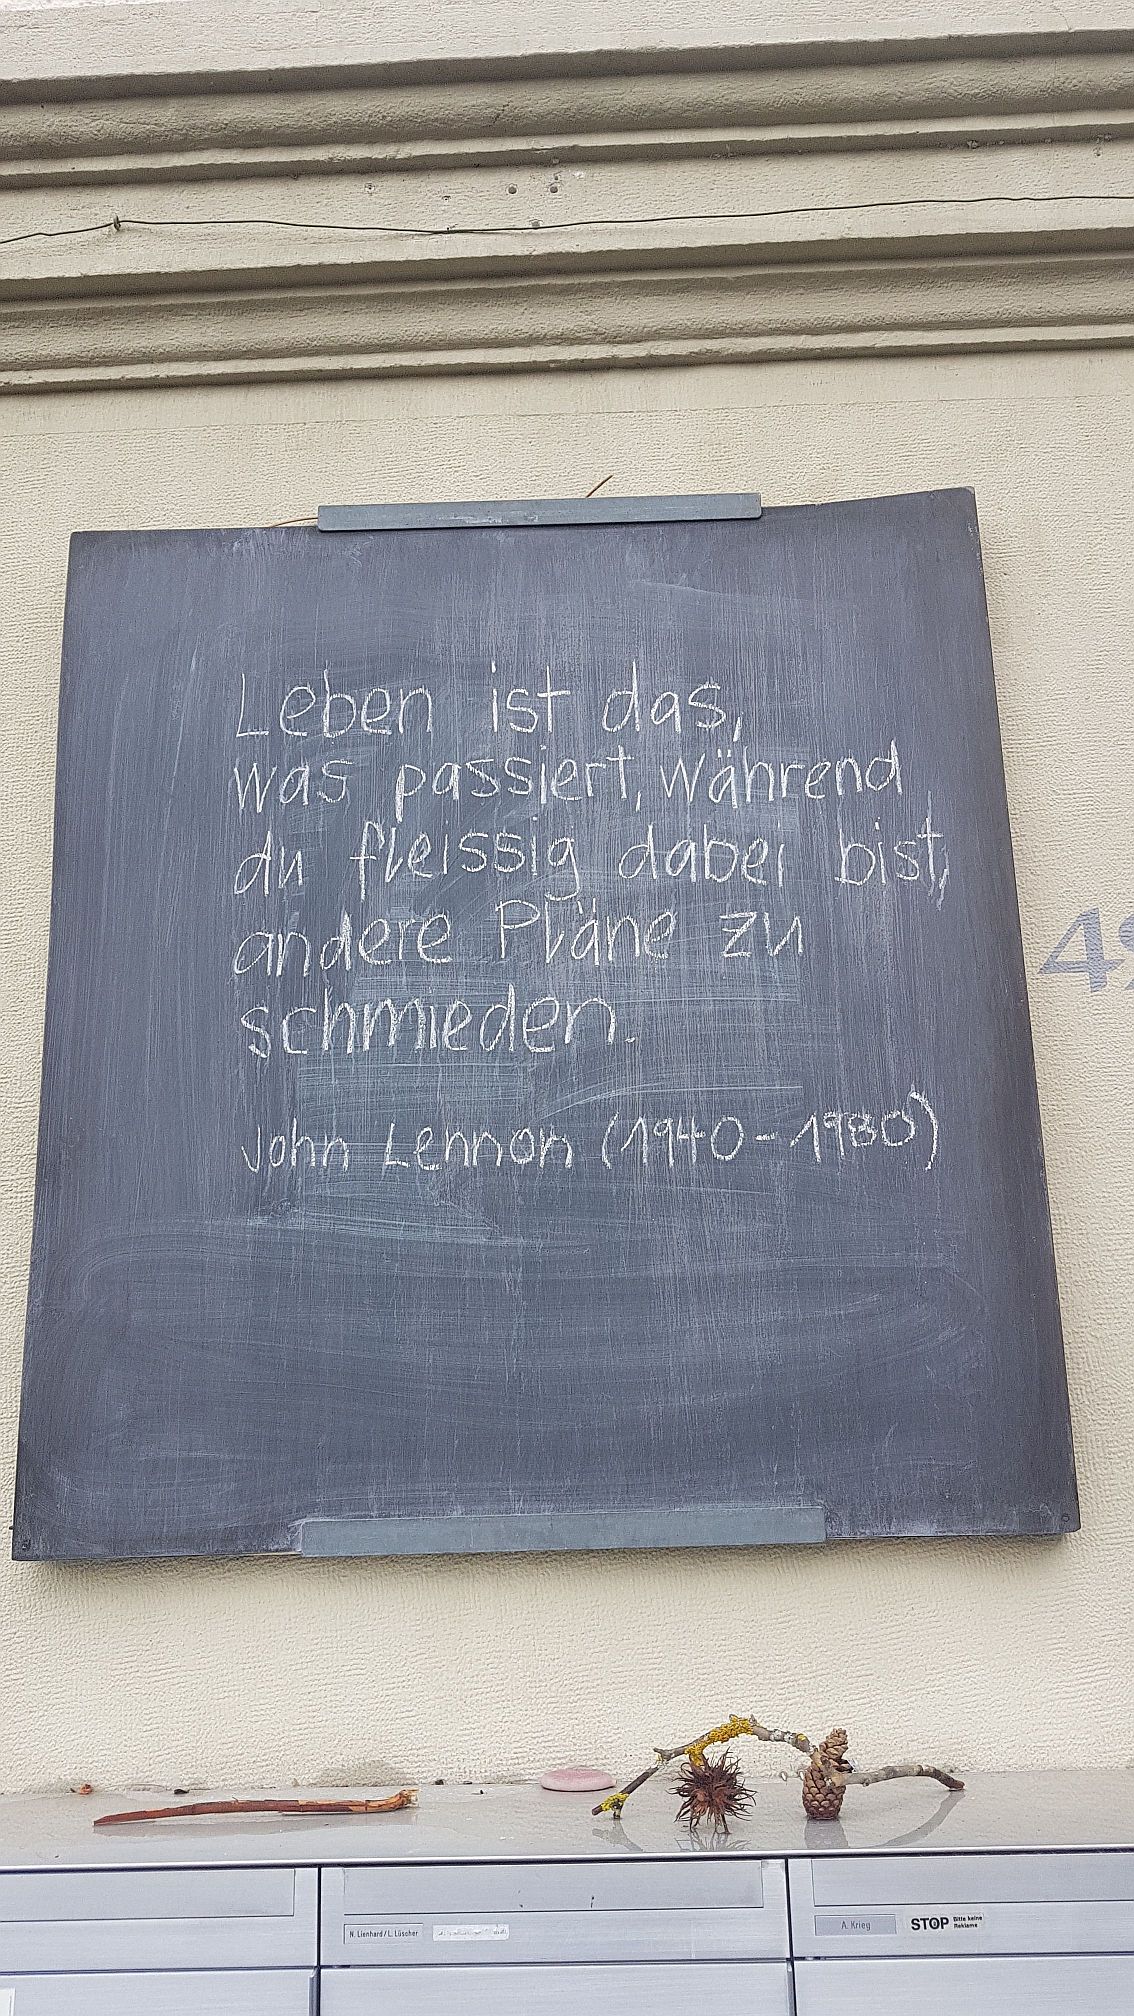 Leben ist das,
was passiert, während
du fleissig dabei bist,
andere Pläne zu
schmieden.
John Lennon (1940-1980)
N. Lienhard / L. Lüscher
A. Krieg
STOP Bitte keine
Reklame